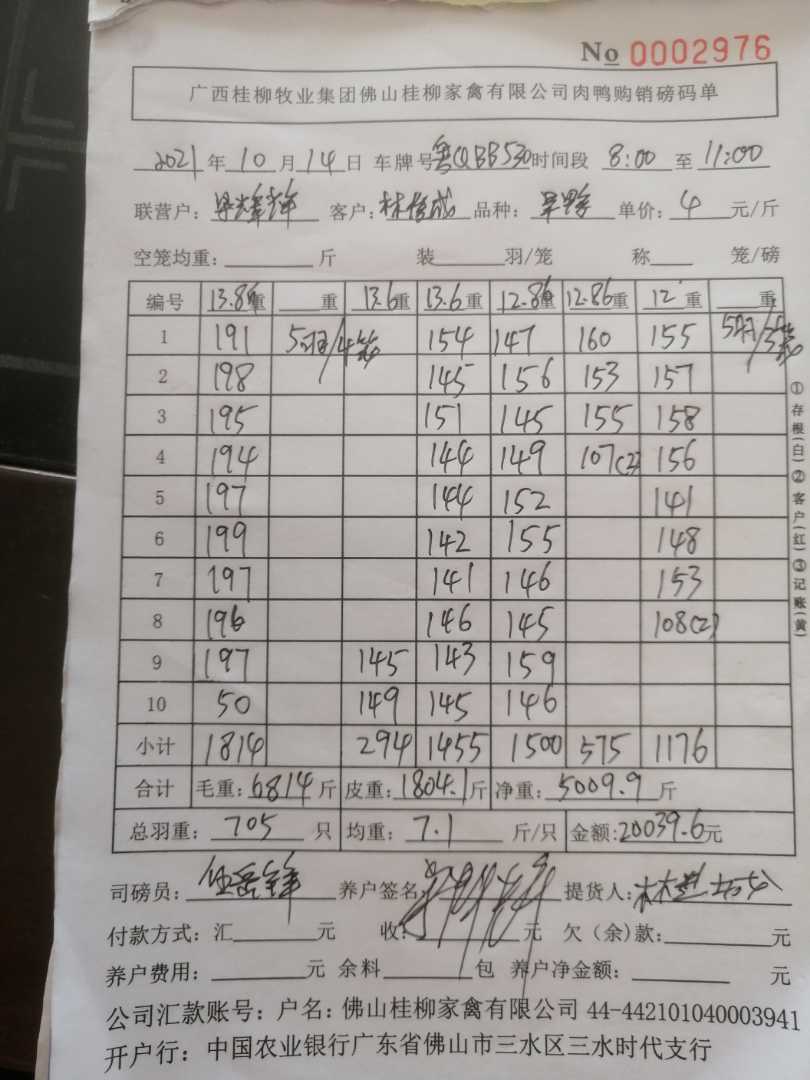 No 0002976
广西桂柳牧业集团佛山桂柳家禽有限公司肉鸭购销磅码单
2021年10月14日 车牌号粤QBB530时间段 8:00 至 11:00
联营户: 客户:林 品种: 单价: 4 元/斤
空笼均重: 斤 装 羽/笼 称 笼/磅
编号 13.86重 重 13.6重 13.6重 12.86重 12.86重 12重 重
1 191 5 /4 154 147 160 155 5 /3
2 198 145 156 153 157
3 195 151 145 155 158
4 194 144 149 107(2) 156
5 197 144 152 141
6 199 142 155 148
7 197 141 146 153
8 196 146 145 108(2)
9 197 145 143 159
10 50 149 145 146
小计 1814 294 1455 1500 575 1176
合计 毛重:6814斤 皮重:1804.1斤 净重:5009.9斤
总羽重:705只 均重:7.1斤/只 金额:20039.6元
司磅员:伍岳锋 养户签名 提货人:林
付款方式:汇 元 收: 元 欠(余)款: 元
养户费用: 元 余料 包 养户净金额: 元
公司汇款账号:户名:佛山桂柳家禽有限公司 44-442101040003941
开户行:中国农业银行广东省佛山市三水区三水时代支行
①存根(白)②客户(红)③记账(黄)